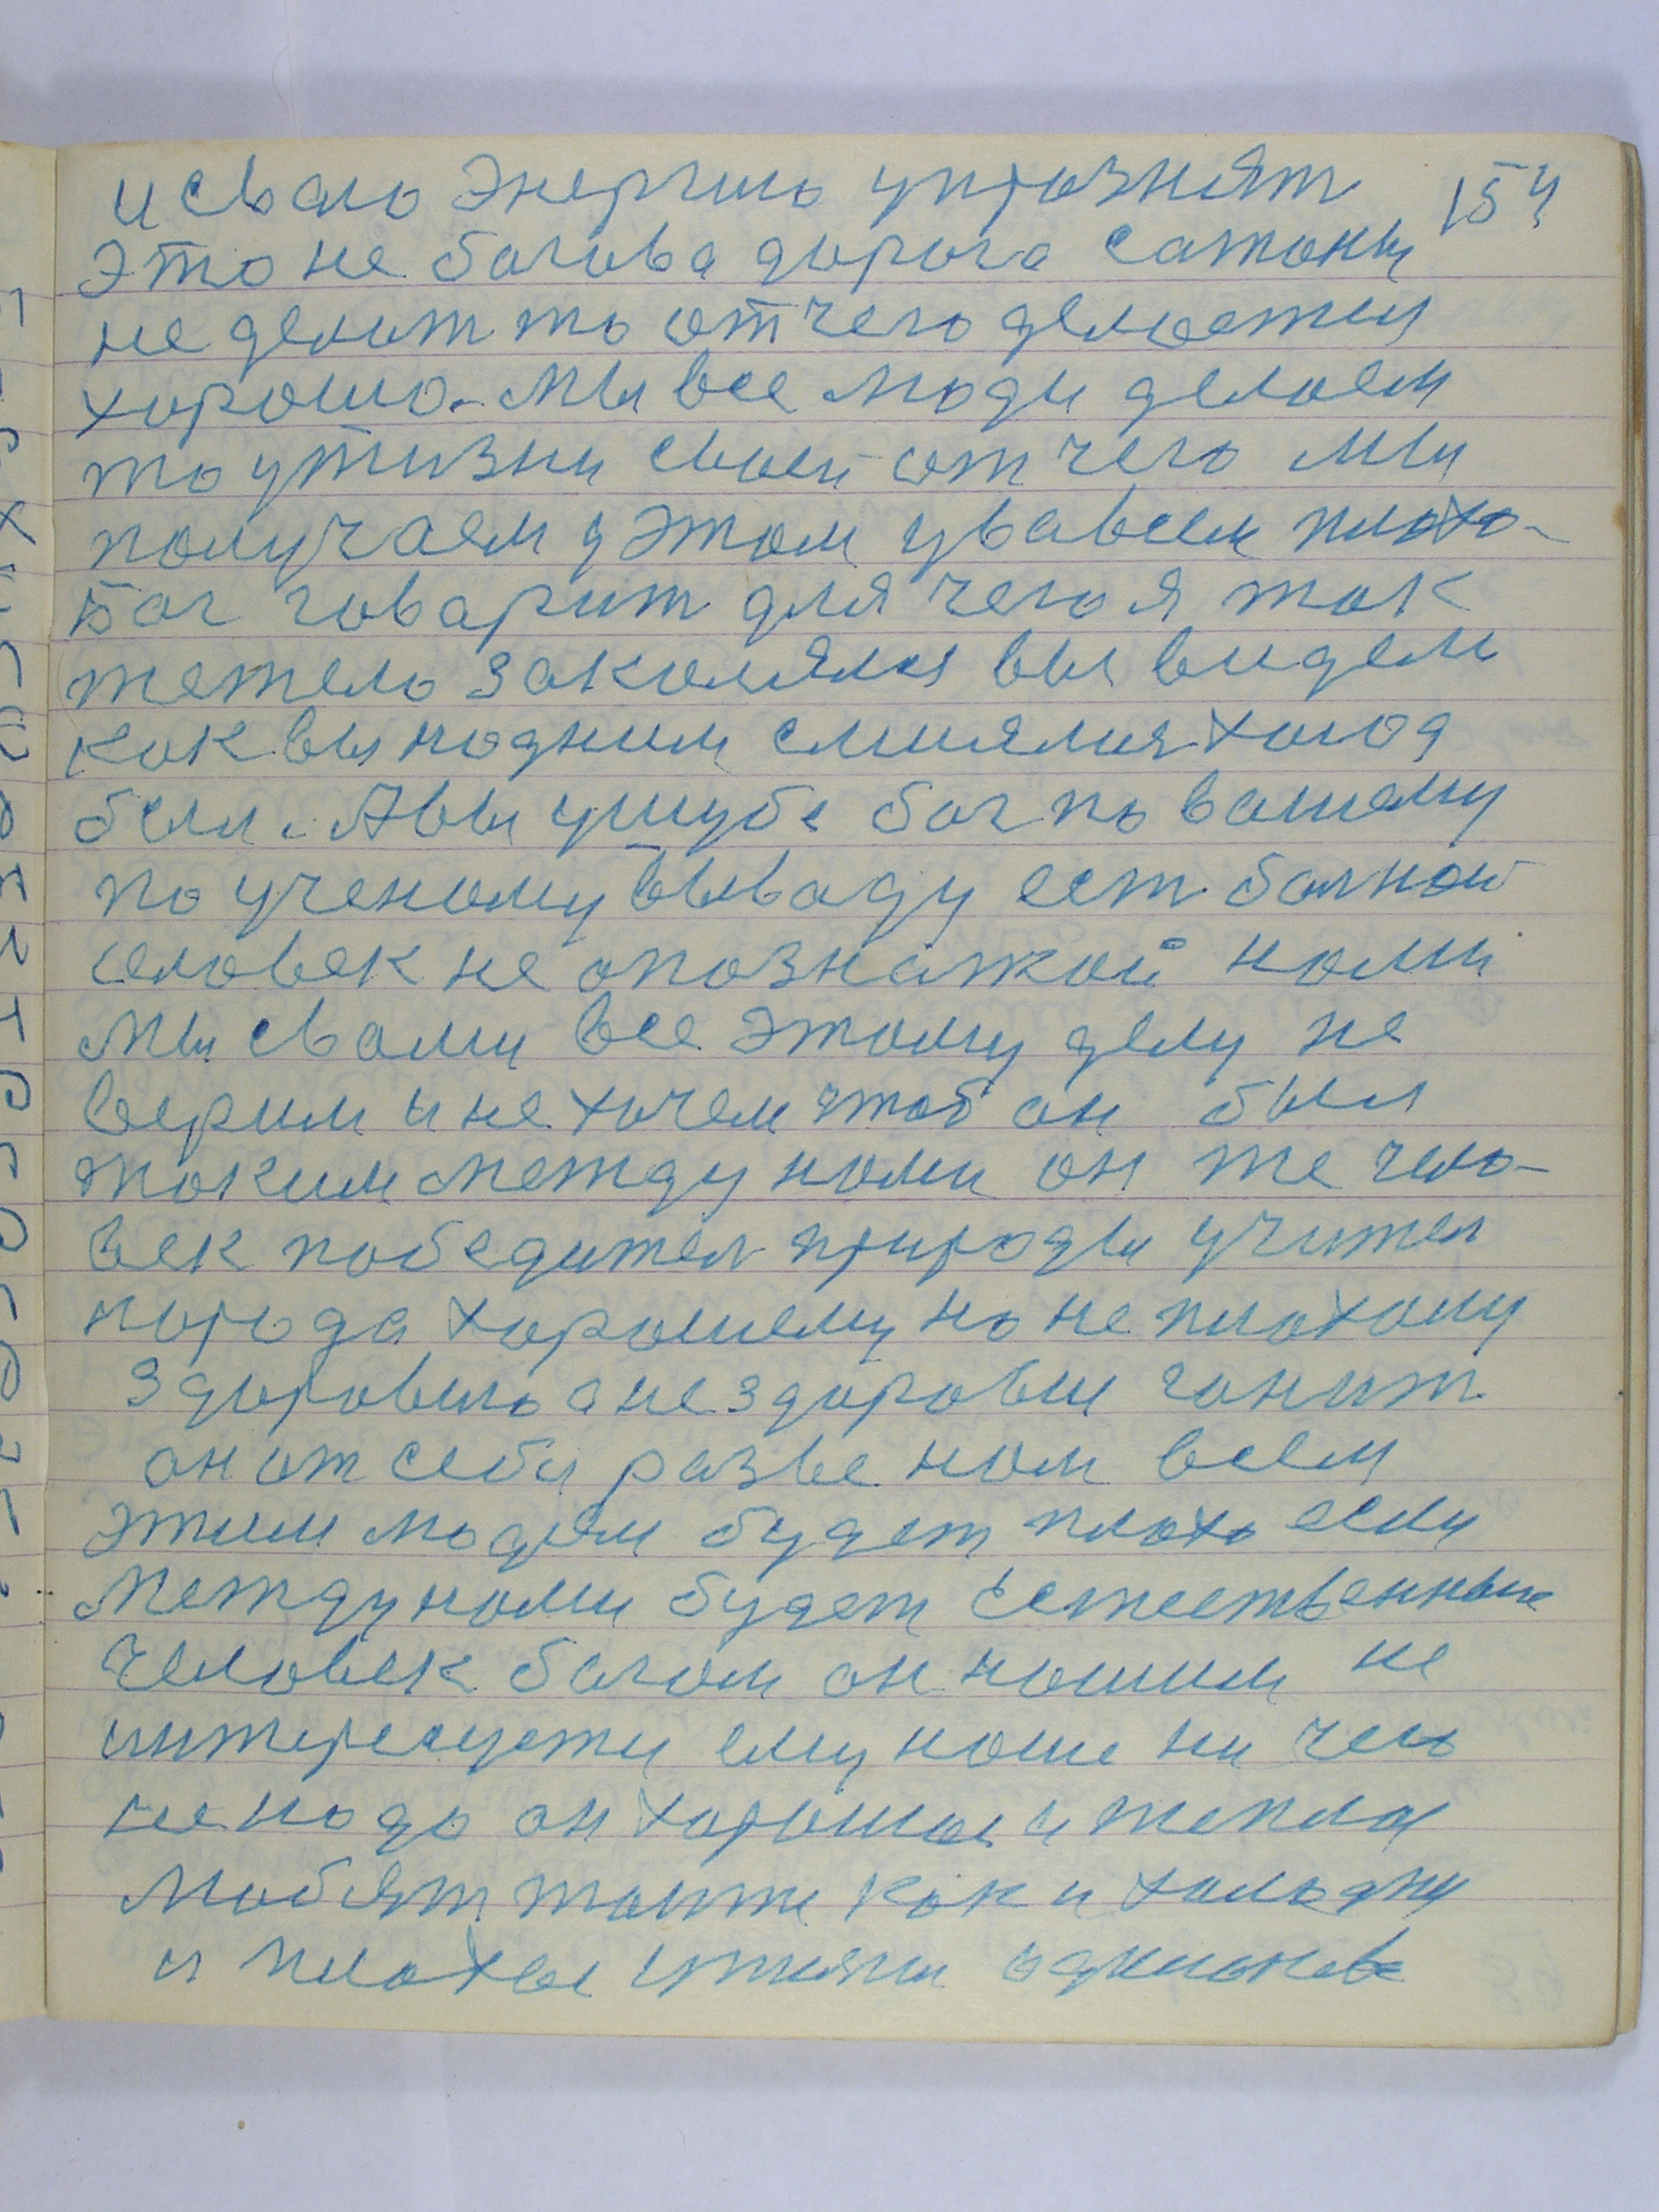 и сваю Энергию упрозният 154
Это не богова дорога сатоны
не делит то от чего делается
хорошо. Мы все люди делаем
то у жизни своей от чего мы
получаем у этом у вавсем плохо-
Бог говарит для чего я ток
тежело закалялся вы видели
как вы над ним смиялися холод
был. А вы у шубе бог по вашему
по ученому вываду ест болной
человек не опознаткой нами
Мы свами все этому делу не
верим и не хочем чтоб он был
таким между нами он же чело-
век победител природы учител
народа хорошему но не плохому
здоровию а не здоровие гонит
он от себя разве нам всем
этим людям будет плохо если
Между нами будет Естественные
Человек богом он нашим не
интересуется ему наше ни чего
не надо он хорошое и тепло
Любят тоже как и холодну
и плохое